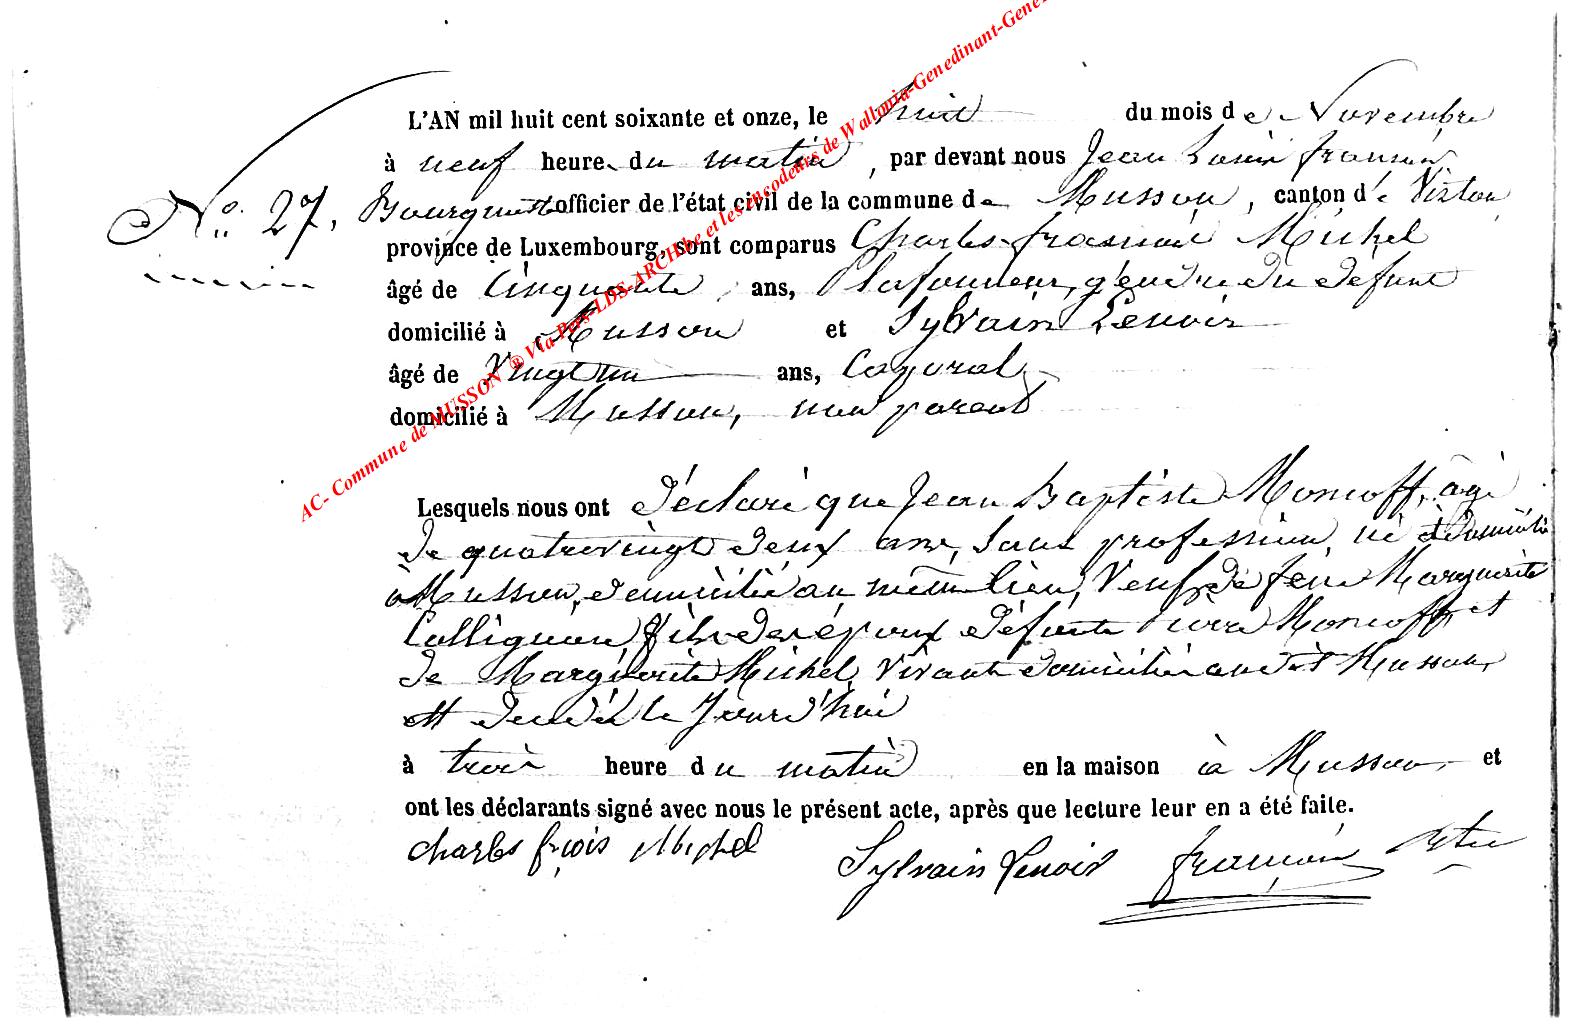 L'AN mil huit cent soixante et onze, le huit du mois de Novembre
à neuf heure du matin, par devant nous Jean Louis françois
No. 27. Bourguignon officier de l'état civil de la commune de Musson, canton de Virton
province de Luxembourg, sont comparus Charles françois Michel
âgé de Cinquante ans, Plafonneur, gendre du défunt
domicilié à Musson et Sylvain Lenoir
âgé de Vingt un ans, Caporal,
domicilié à Musson, non parent
Lesquels nous ont déclaré que Jean Baptiste Moncoff, âgé
de quatrevingt deux ans, Sans profession, né
à Musson, domicilié au même lieu, Veuf de feue Marguerite
Collignon, fils des époux défunts Pierre Moncoff, et
de Marguerite Michel, Vivants domiciliés audit Musson,
est décédé le Jourd'hui
à trois heure du matin en la maison à Musson, et
ont les déclarants signé avec nous le présent acte, après que lecture leur en a été faite.
charles frçois Michel Sylvain Lenoir françois
AC- Commune de MUSSON ® Via Pers-LDS-ARCH.be et les encodeurs de Wallonia-Genedinant-Gene